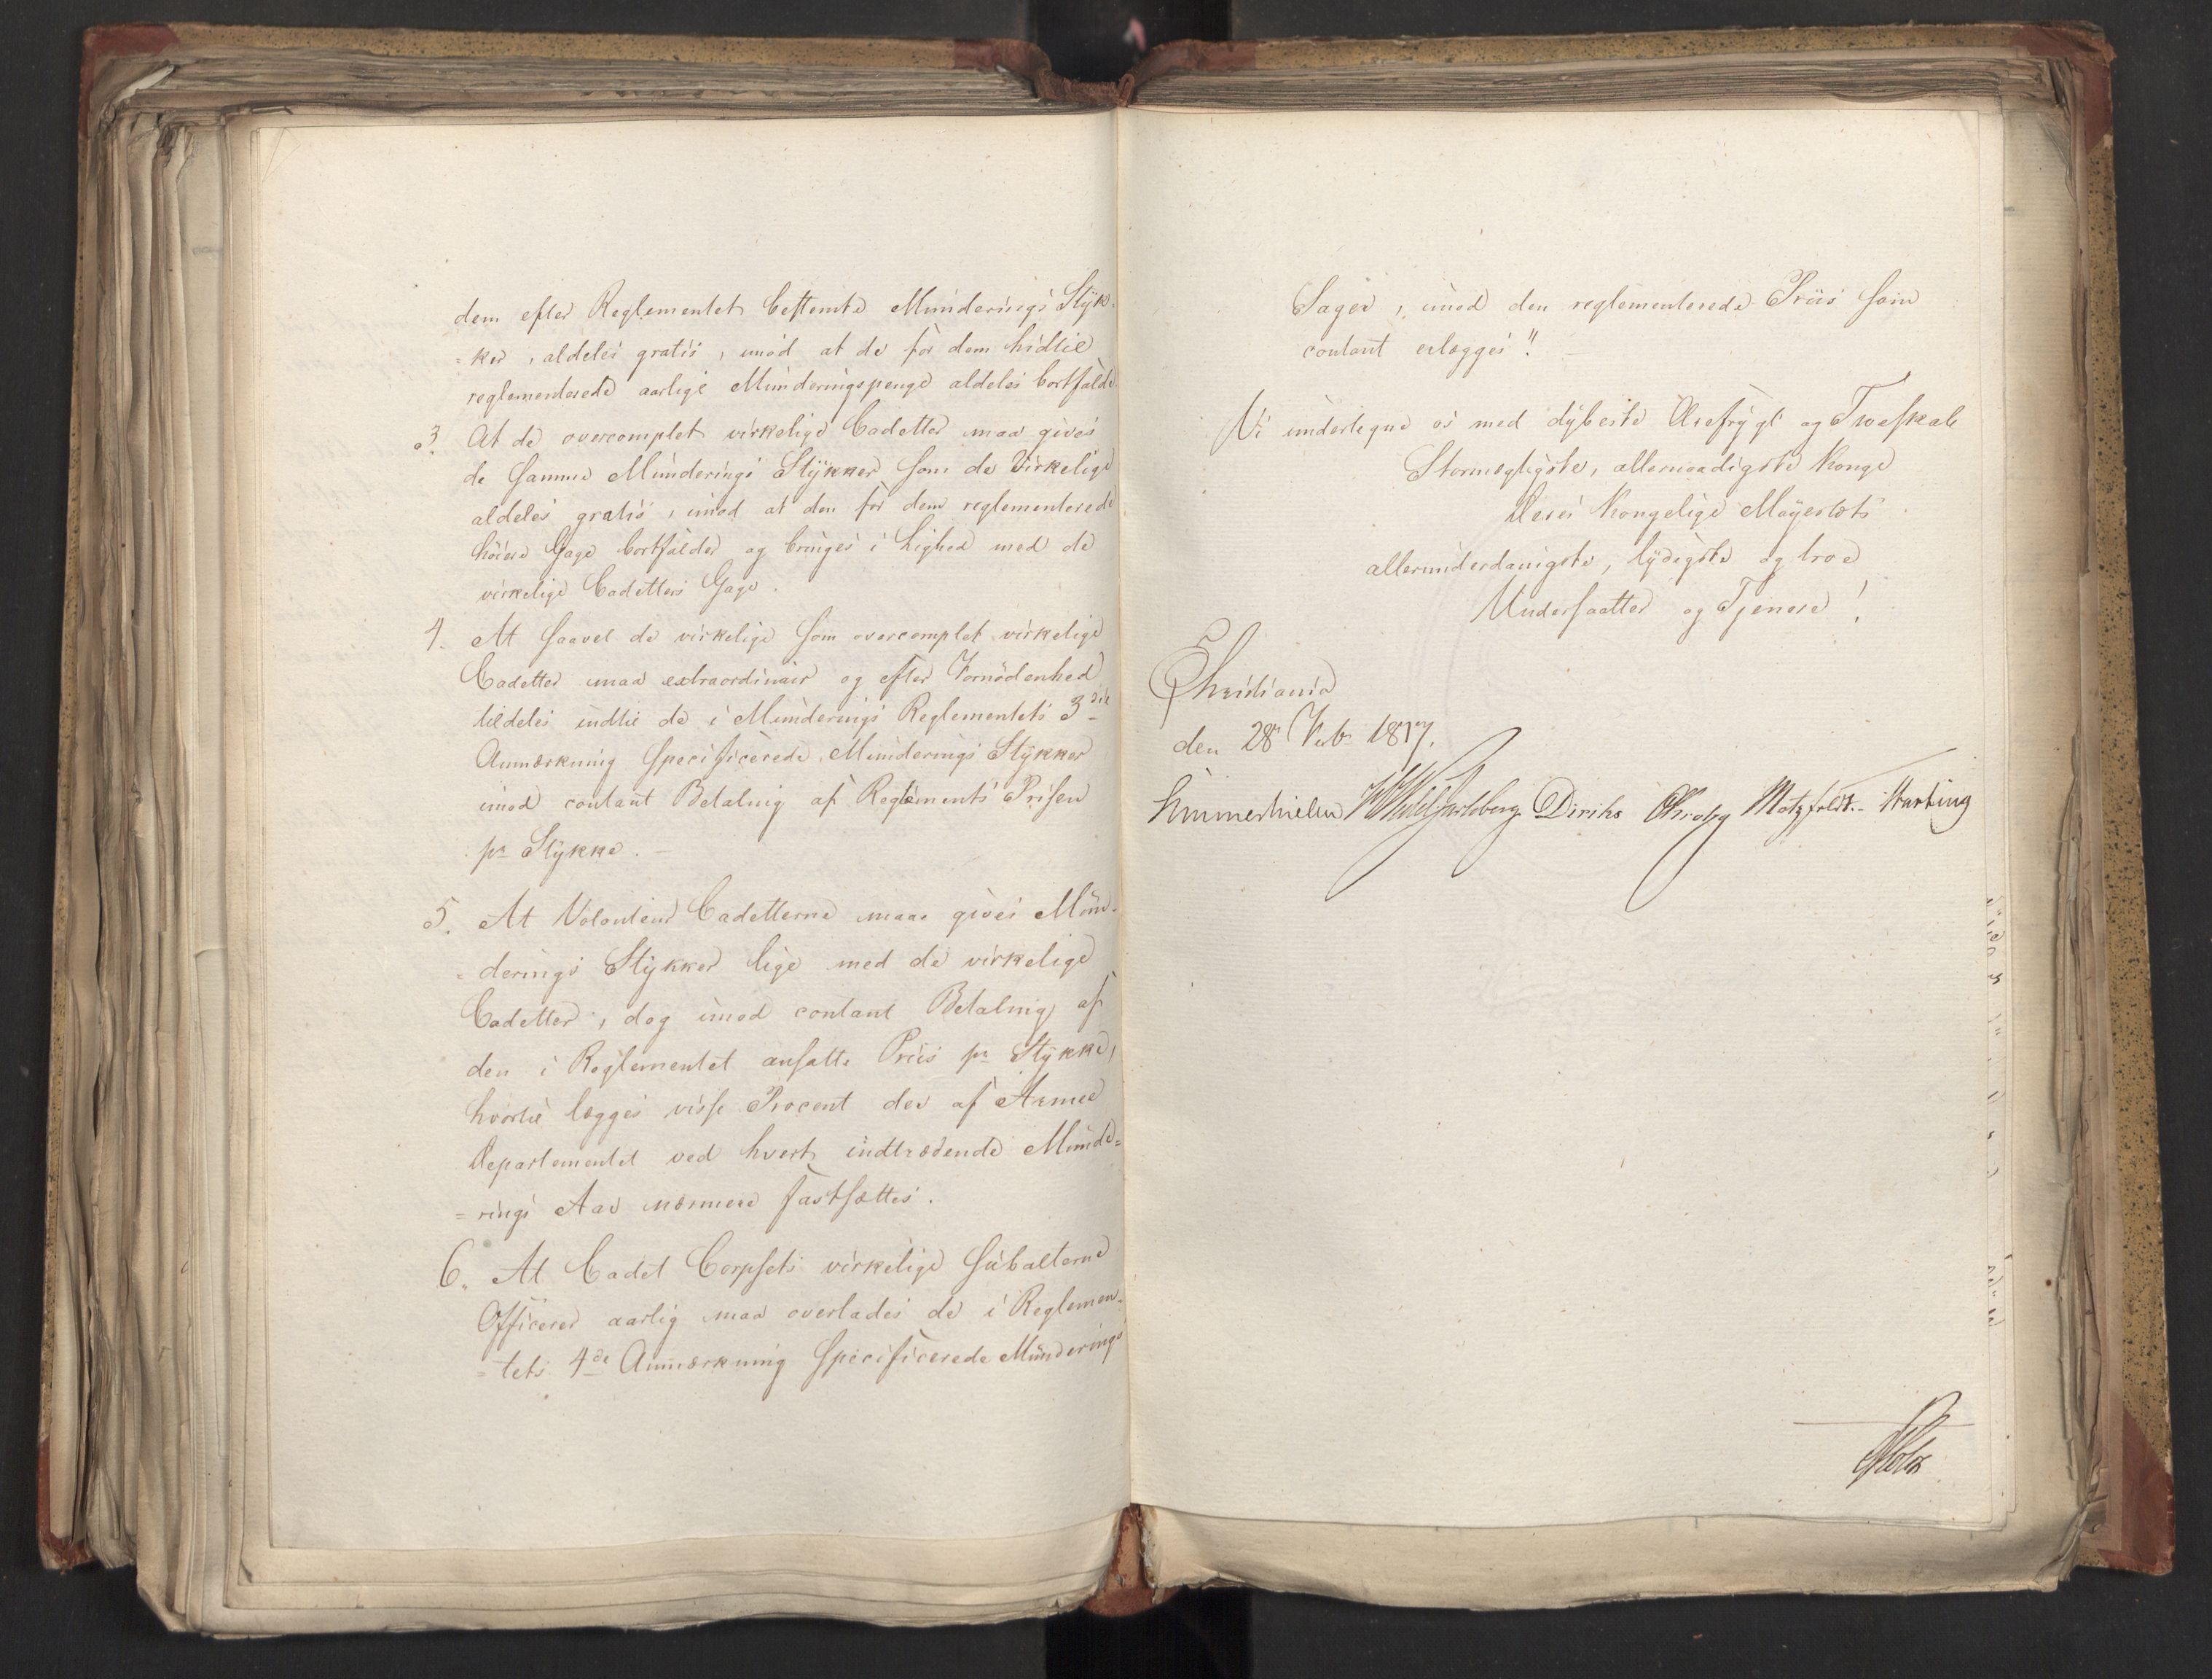 dem efter Reglementet bestemte Munderings Styk-
=ker, aldeles gratis, imod at de for dem hidtil
reglementerede aarlige Munderingspenge aldeles bortfalde.
3. At de overcomplet virkelige Cadetter maa gives
de samme Munderings Stykker som de Virkelige
aldeles gratis, imod at den for dem reglementerede
høiere Gage bortfalder og bringes i Lighed med de
virkelige Cadetters Gage.
4. At saavel de virkelige som overcomplet virkelige
Cadetter maa extraordinair og efter Fornødenhed
tildeles indtil de i Munderings Reglementets 3die
Anmærkning specificerede Munderings Stykker
imod contant Betaling af Reglements Prisen
pr Stykke. —
5. At Volontair Cadetterne maae gives Mun-
=derings Stykker lige med de virkelige
Cadetter, dog imod contant Betaling af
den i Reglementet ansatte Priis pr Stykke,
hvortil lægges visse Procent der af Armee
Departementet ved hvert indtrædende Munde=
=rings Aar nærmere fastsættes.
6. At Cadet Corpsets virkelige subalterne
Officerer aarlig maa overlades de i Reglemen-
=tets 4de Anmærkning specificerede Munderings
Sager, imod den reglementerede Priis som
contant erlægges". —
Vi undertegne os med dybeste Ærefrygt og Troeskab
Stormægtigste, allernaadigste Konge
Deres Kongelige Mayestæts
allerunderdanigste, lydigste og troe
Undersaatter og Tjenere!
Christiania
den 28 Feb 1817.
Hummerhielm Wedel Jarlsberg Diriks Krohg Motzfeldt. Harbing
Holst